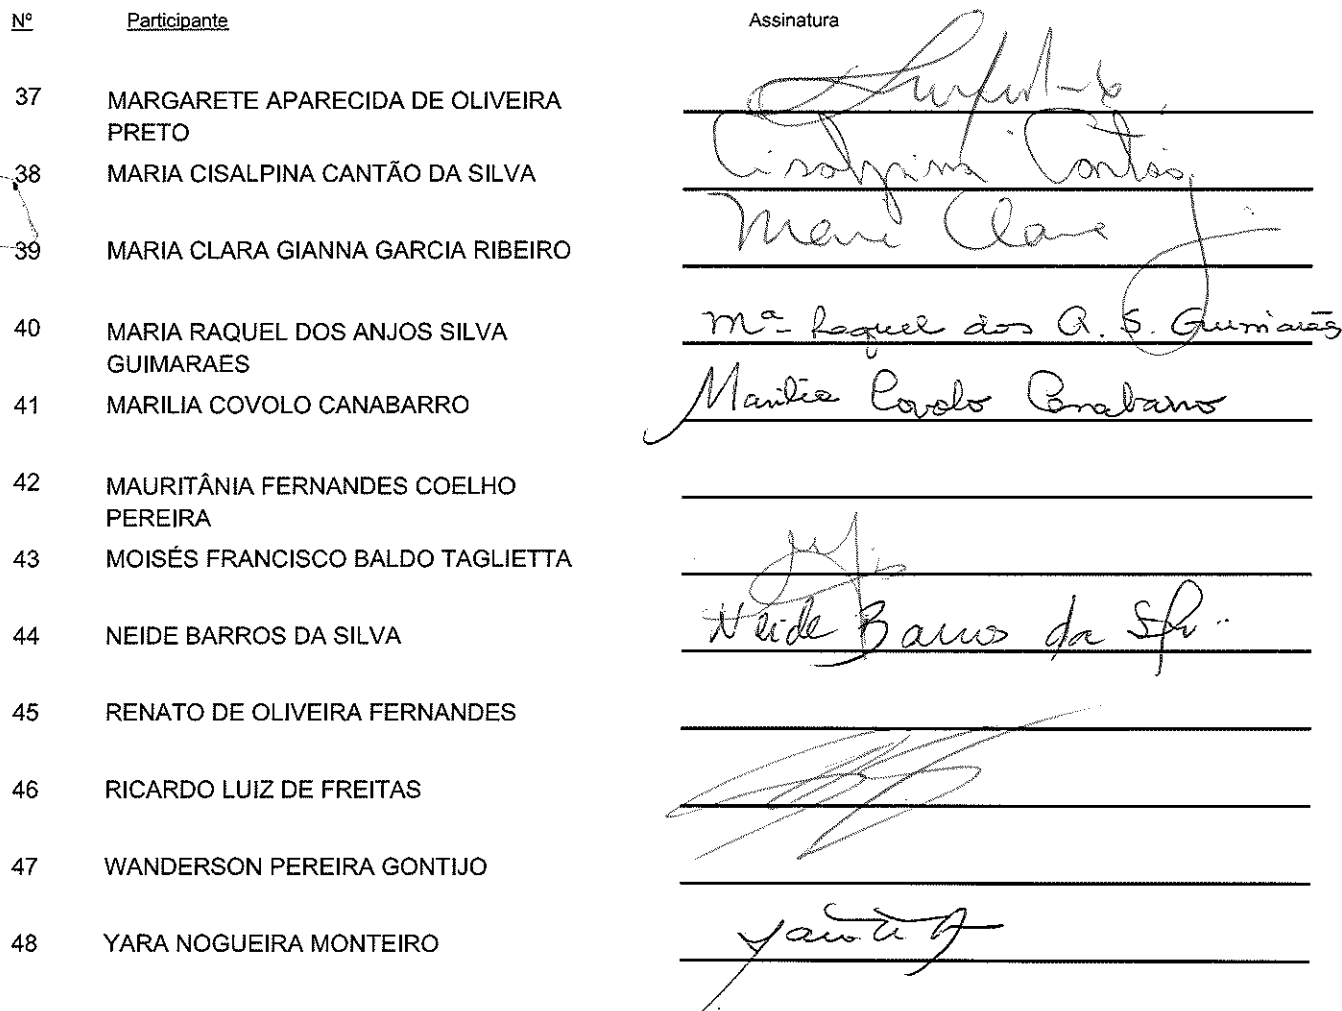 Nº Participante Assinatura
37 MARGARETE APARECIDA DE OLIVEIRA
PRETO
38 MARIA CISALPINA CANTÃO DA SILVA Cisalpina Cantão
39 MARIA CLARA GIANNA GARCIA RIBEIRO Maria Clara
40 MARIA RAQUEL DOS ANJOS SILVA Mª Raquel dos A. S. Guimarães
GUIMARAES
41 MARILIA COVOLO CANABARRO Marilia Covolo Canabarro
42 MAURITÂNIA FERNANDES COELHO
PEREIRA
43 MOISÉS FRANCISCO BALDO TAGLIETTA
44 NEIDE BARROS DA SILVA Neide Barros da
45 RENATO DE OLIVEIRA FERNANDES
46 RICARDO LUIZ DE FREITAS
47 WANDERSON PEREIRA GONTIJO
48 YARA NOGUEIRA MONTEIRO